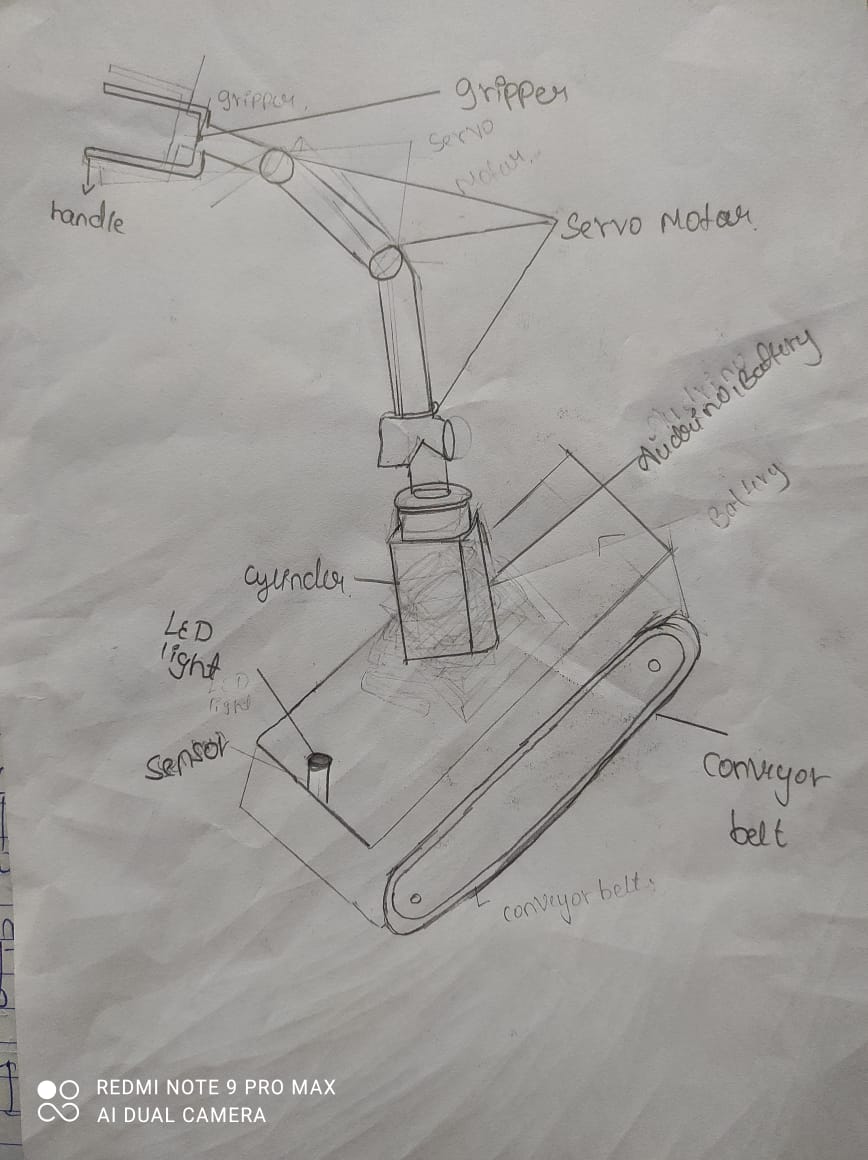 gripper.
gripper
servo
Motor.
handle
Servo Motor.
Battery
Audouino, Battery
Cylinder
LED
light
LED
light
Sensor
Conveyor
belt
conveyor belt.
REDMI NOTE 9 PRO MAX
AI DUAL CAMERA